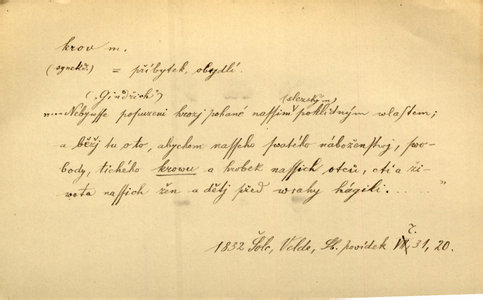 krov m.
(synekd.) = příbytek, obydlí.
("Gindřich")
"..... Nebywsse popuzeni hrozj pohané nassim (slezským) poklidným wlastem;
a běžj tu o to, abychom nasseho swatého náboženstwj, swo-
body, tichého krowu a hrobek nassich otců, cti a ži-
wota nassich žen a dětj před wrahy hágili....."
1832 Šolc, Veleb, Sb. povídek č. 31, 20.